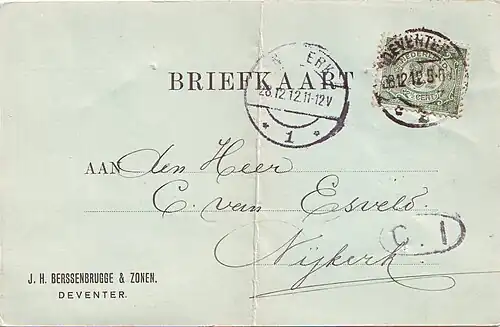 DEVENTER
28.12.12.5-6
CENT
ERK
BRIEFKAART
28.12.12.11-12V
* 1 *
2
AAN den Heer
C. van Esveld.
Nijkerk
C. 1
J. H. BERSSENBRUGGE & ZONEN.
DEVENTER.